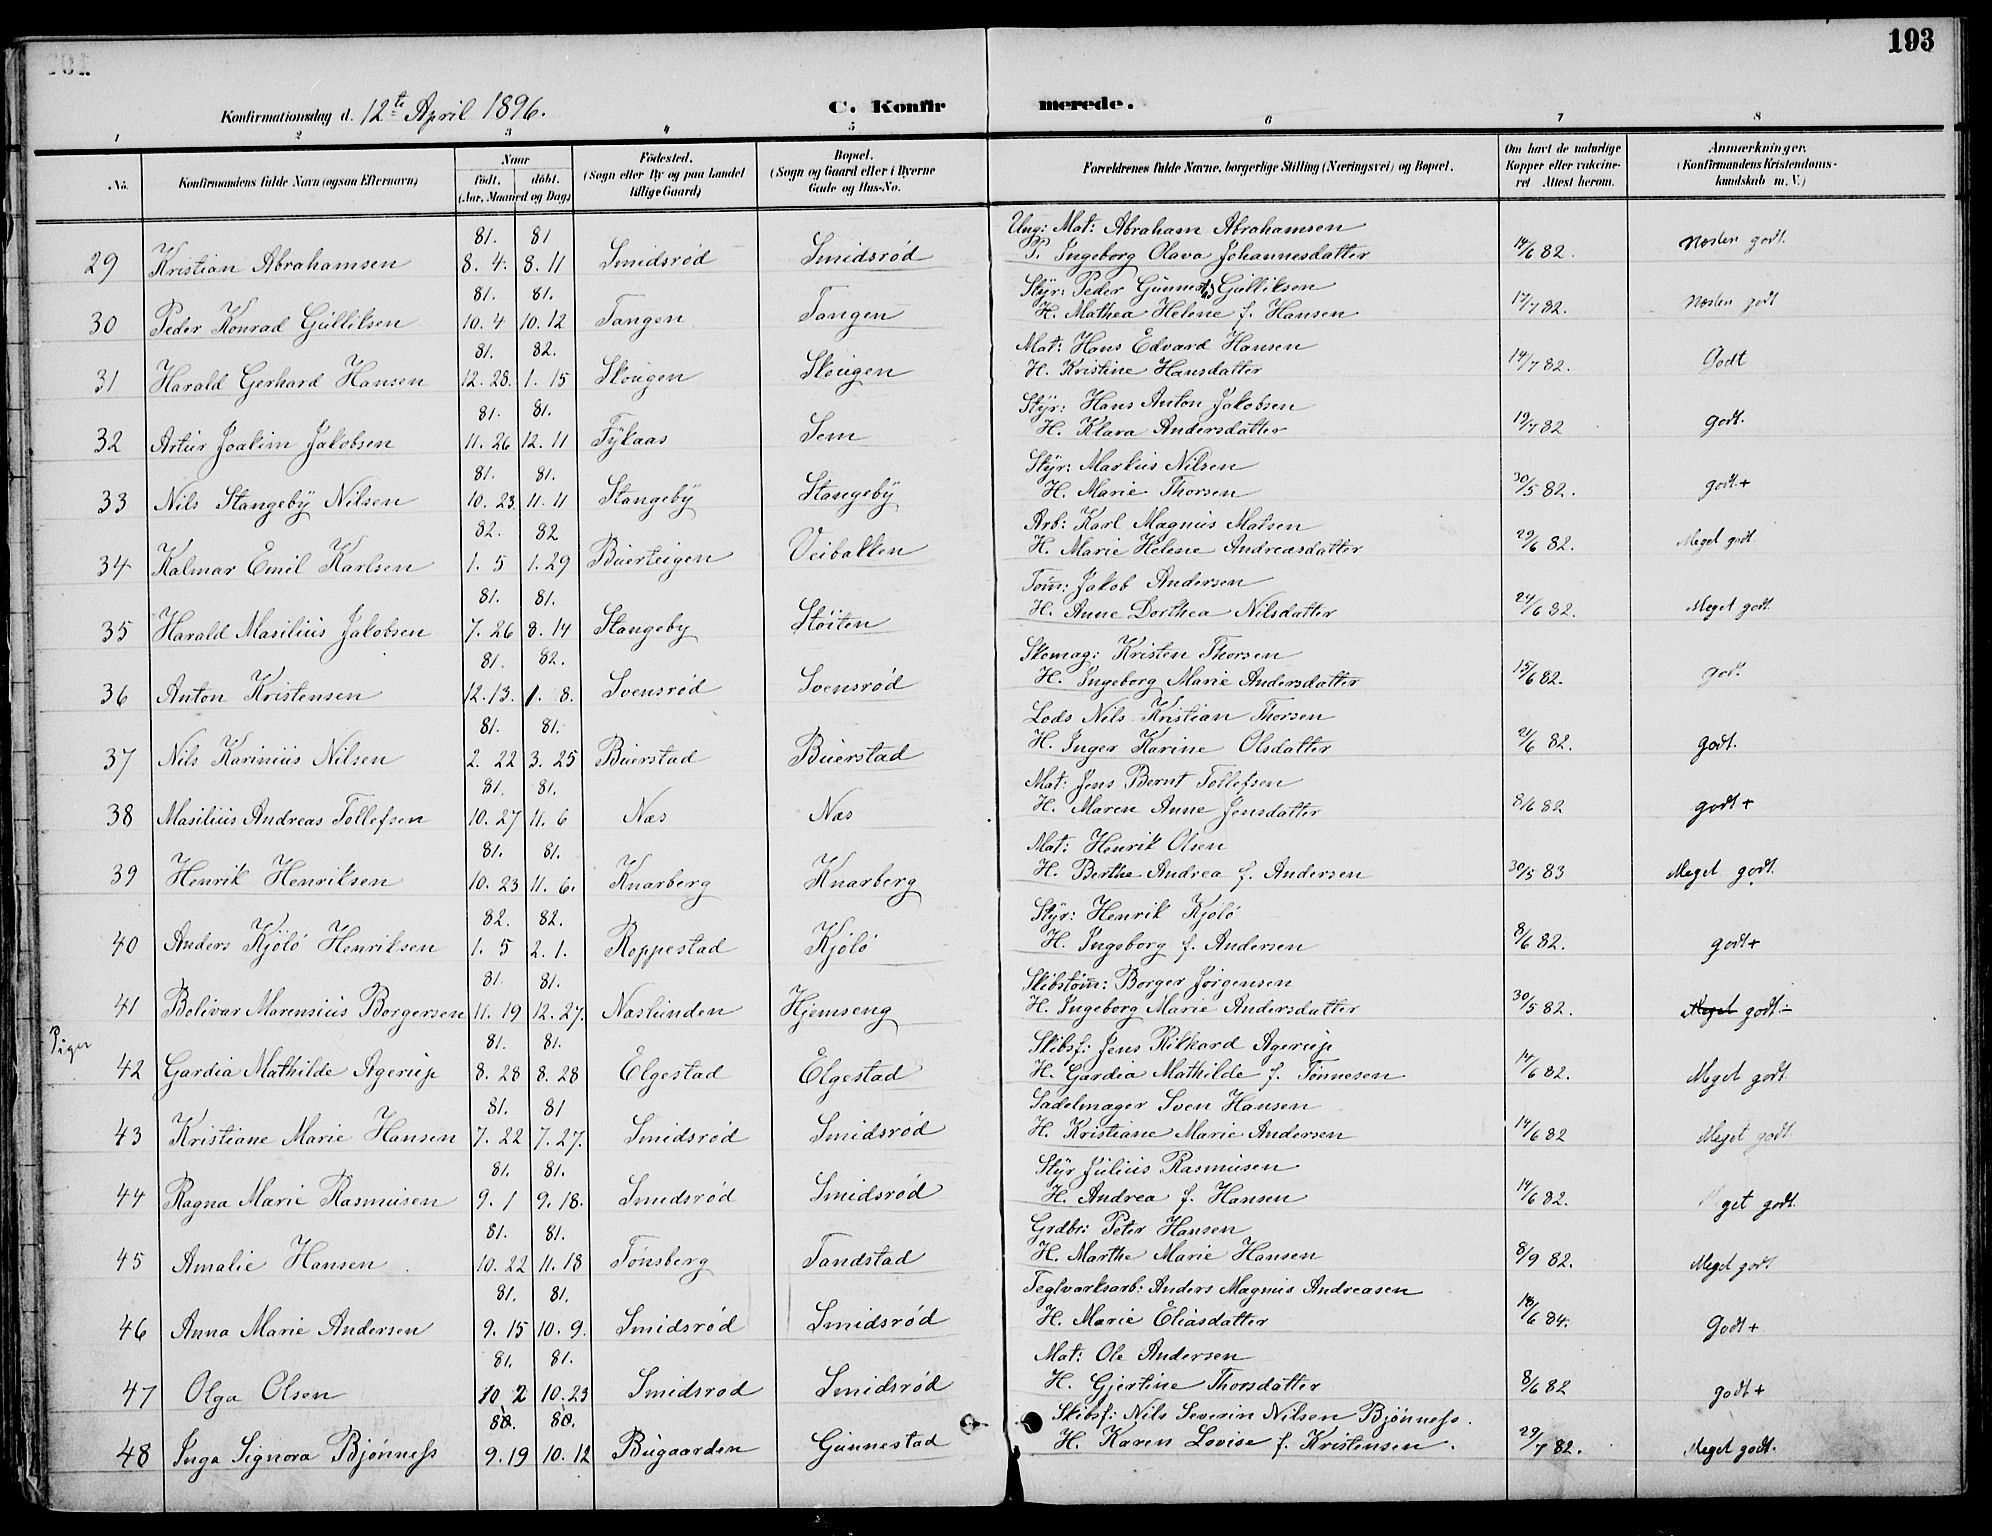 193
Konfirmationsdag d. 12te April 1896.
C. Konfirmerede.
1 2 3 4 5 6 7 8
No. Konfirmandens fulde Navn (ogsaa Efternavn) Naar født. døbt. (Aar, Maaned og Dag) Fødested. (Sogn eller By og paa Landet tillige Gaard) Bopæl. (Sogn og Gaard eller i Byerne Gade og Hus-No. Forældrenes fulde Navne, borgerlige Stilling (Næringsvei) og Bopæl. Om havt de naturlige Kopper eller vakcineret Attest herom. Anmærkninger. (Konfirmandens Kristendomskundskab m. V.)
81. 81 Ung: Mat: Abraham Abrahamsen
29 Kristian Abrahamsen 8. 4. 8. 11 Smidsrød Smidsrød P. Ingeborg Olava Johannesdatter 14/6 82. Næsten godt.
81. 81. Styr: Peder Gunnerus Gulliksen
30 Peder Konrad Gulliksen 10. 4 10. 12 Tangen Tangen H. Mathea Helene f. Hansen 17/7 82. Næsten godt
81. 82. Mat: Hans Edvard Hansen
31 Harald Gerhard Hansen 12. 28. 1. 15 Skougen Skougen H. Kristine Hansdatter 14/7 82. Godt
81. 81. Styr: Hans Anton Jakobsen
32 Artur Joakim Jakobsen 11. 26 12. 11 Fykaas Sem H. Klara Andersdatter 19/7 82 godt.
81. 81. Styr: Markus Nilsen
33 Nils Stangeby Nilsen 10. 23. 11. 11 Stangeby Stangeby H. Marie Thorsen 30/5 82. godt+
82. 82 Arb: Karl Magnus Matsen
34 Kalmar Emil Karlsen 1. 5 1. 29 Buerteigen Veibakken H. Marie Helene Andreasdatter 29/6 82. Meget godt.
81. 81. Tøm: Jakob Andersen
35 Harald Masilius Jakobsen 7. 26 8. 14 Stangeby Støiten H. Anne Dorthea Nilsdatter 24/6 82. Meget godt
81. 82. Skomag: Kristen Thorsen
36 Anton Kristensen 12. 13. 1. 8. Svensrød Svensrød H. Ingeborg Marie Andersdatter 15/6 82. godt.
81. 81. Lods Nils Kristian Thorsen
37 Nils Karinius Nilsen 2. 22 3. 25 Buerstad Buerstad H. Inger Karine Olsdatter 21/6 82. godt.
81. 81. Mat. Jens Bernt Tollefsen
38 Masilius Andreas Tollefsen 10. 27 11. 6 Næs Næs H. Maren Anne Jensdatter 8/6 82 godt+
81. 81. Mat: Henrik Olsen
39 Henrik Henriksen 10. 23 11. 6. Knarberg Knarberg H. Berthe Andrea f. Andersen 30/5 83 Meget godt.
82. 82. Styr: Henrik Kjølø
40 Anders Kjølø Henriksen 1. 5 2. 1. Roppestad Kjølø H. Ingeborg f. Andersen 8/6 82. godt+
81. 81. Skibstøm: Borger Jørgensen
41 Bolivar Marensius Borgersen 11. 19 12. 27. Næslunden Hjemseng H. Ingeborg Marie Andersdatter 30/5 82. Meget godt-
Piger
81. 81. Skibsf: Jens Rikhard Agerup
42 Gardia Mathilde Agerup 8. 28 8. 28 Elgestad Elgestad H. Gardia Mathilde f. Tønnesen 14/6 82. Meget godt.
81. 81 Sadelmager Sven Hansen
43 Kristiane Marie Hansen 7. 22 7. 27. Smidsrød Smidsrød H. Kristiane Marie Andersen 14/6 82 Meget godt.
81. 81. Styr Julius Rasmusen
44 Ragna Marie Rasmusen 9. 1 9. 18. Smidsrød Smidsrød H. Andrea f. Hansen 14/6 82. Meget godt.
81. 81. Grdbr: Peter Hansen
45 Amalie Hansen 10. 22 11. 18 Tønsberg Tandstad H. Marthe Marie Hansen 8/9 82. Meget godt
81. 81. Teglværksarb: Anders Magnus Andreasen
46 Anna Marie Andersen 9. 15 10. 9. Smidsrød Smidsrød H. Marie Eliasdatter 18/6 84. Godt+
81. 81. Mat: Ole Andersen
47 Olga Olsen 10 2 10. 23 Smidsrød Smidsrød H. Gjertine Thorsdatter 8/6 82 godt+
80. 80. Skibsf: Nils Severin Nilsen Bjønness.
48 Inga Signora Bjønness 9. 19 10. 12 Bugaarden Gunnestad H. Karen Lovise f. Kristensen. 29/7 82. Meget godt.